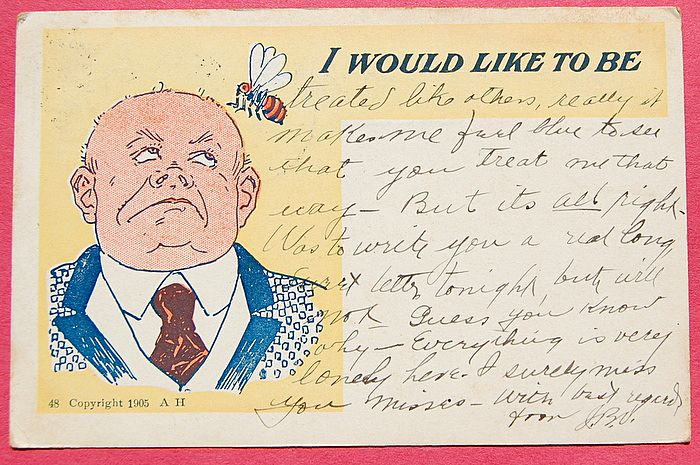 I WOULD LIKE TO BE
treated like others, really it
makes me feel blue to see
that you treat me that
way – But its all right –
Was to write you a real long
letter tonight but will
not – Guess you know
why – Everything is very
lonely here. I surely miss
you Misses – with best regards
from J.B.V.
48 Copyright 1905 A H